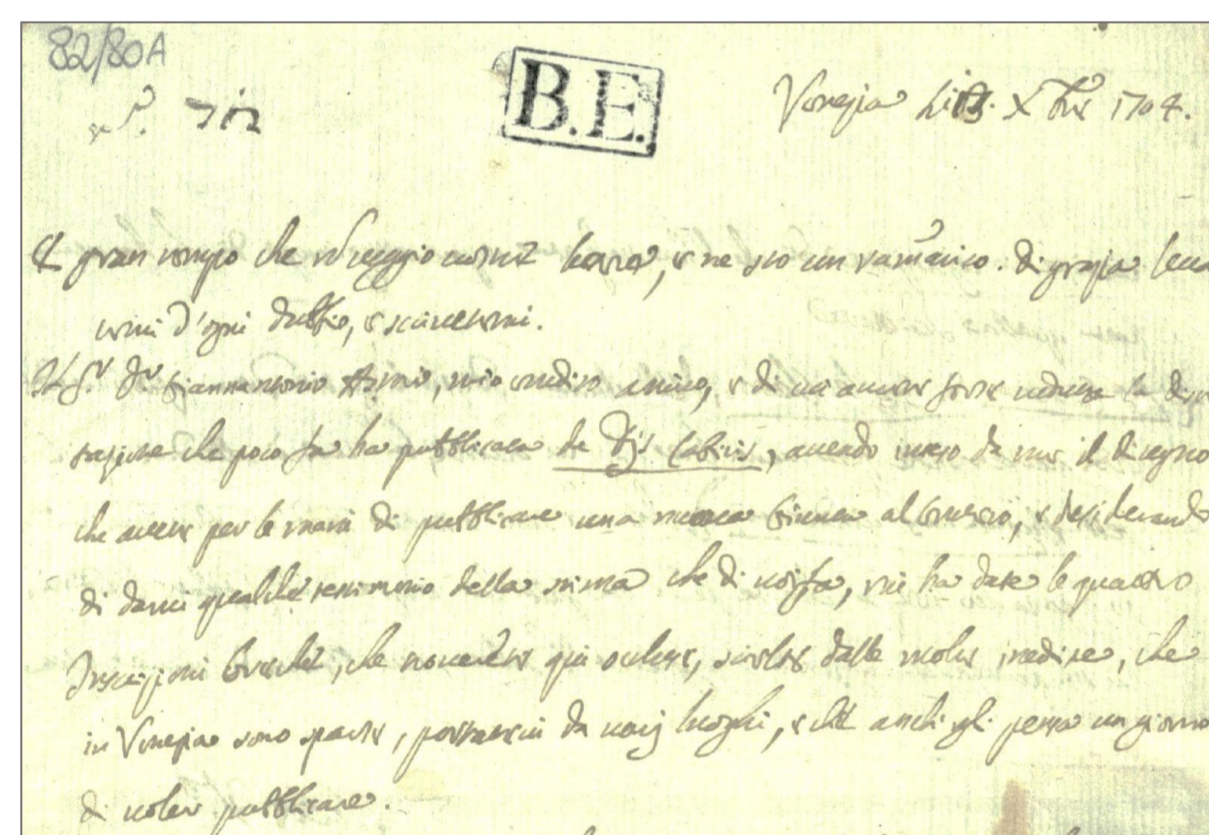 82/80A
B.E.
Venezia li 13. Xbre 1704.
È gran tempo che non veggio vostre lettere, e ne sto con rammarico. Di grazia leva
temi d'ogni dubbio, e scrivetemi.
Il Sr. Dr Giannantonio Astori, mio erudito amico, e di cui avrete forse veduta la disser
tazione che poco fa ha pubblicata de Dijs Cabiris, avendo inteso da me il disegno
che avete per le mani di pubblicare una nuova Giunta al Grutero, e desiderando
di darvi qualche testimonio della stima che di voi fa, mi ha date le quattro
Inscrizioni Greche, che troverete qui occluse, scelte dalle molte inedite, che
in Venezia sono sparse, portatevi da varij luoghi, e che anch'egli pensa un giorno
di voler pubblicare.